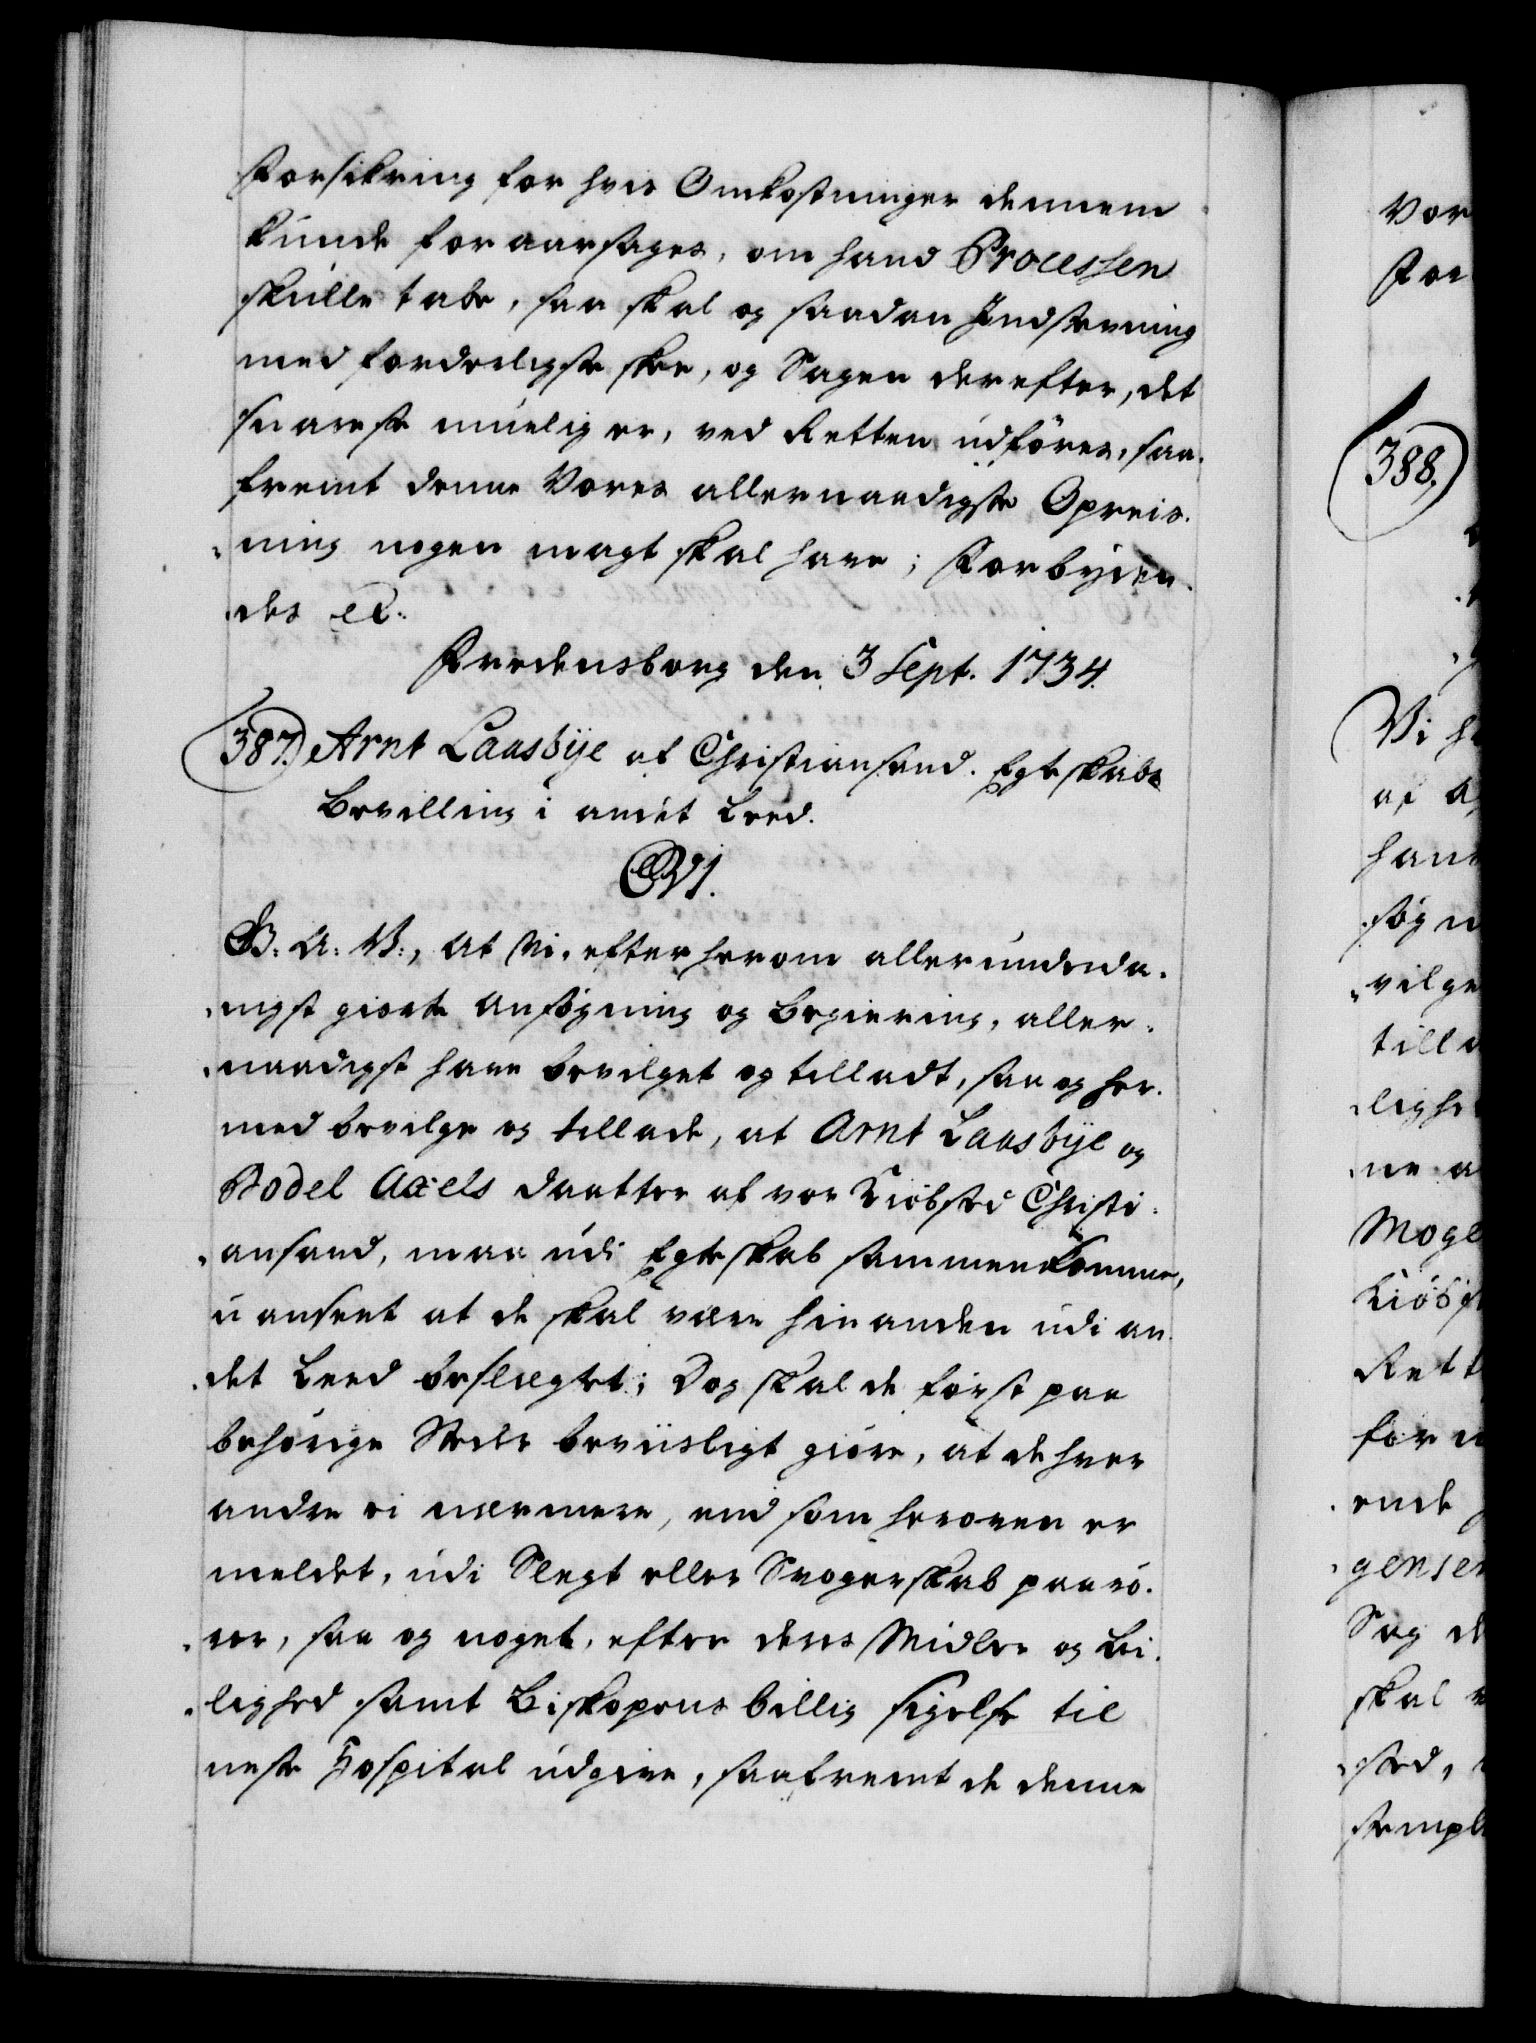 Forsikring for hvis Omkostninger dennem
kunde foraarsages, om hand Processen
skulle tabe, saa skal og saadan Indstevning
med forderligste skee, og Sagen derefter, det
snareste muelig er, ved Retten udføres, saa-
fremt denne Vores allernaadigste Opreis-
ning nogen magt skal have; Forbyden-
des etc.
Fredensborg den 3 Sept. 1734.
387. Arnt Laasbye af Christiansand. Egteskabs
bevilling i andet Leed.
C VI.
G: A: V:, at Vi, efter herom allerunderda-
nigst giorte Ansøgning og Begiering, aller-
naadigst have bevilget og tilladt, saa og her-
med bevilge og tillade, at Arnt Laasbye og
Bodel Axels Daatter af vor Kiøbsted Christi-
ansand, maa udi Egteskab sammenkomme,
uanseet at de skal være hinanden udi an-
det Leed beslægtet; Dog skal de først paa
behørige Steder beviisligt giøre, at de hver
andre ei nærmere, end som heroven er
meldet, udi Slegt eller Svogerskab paarø-
rer, saa og noget, efter deres Midler og Lei-
lighed samt Biskopens billig sigelse til
neste Hospital udgive, saafremt de denne
Vor
For
388,
Vi h
af A
hand
søgn
vilge
tilla
lighe
ne a
Moge
Kiøbst
Rett
før u
ende
gensen
Sag de
skal
sted,
stempl